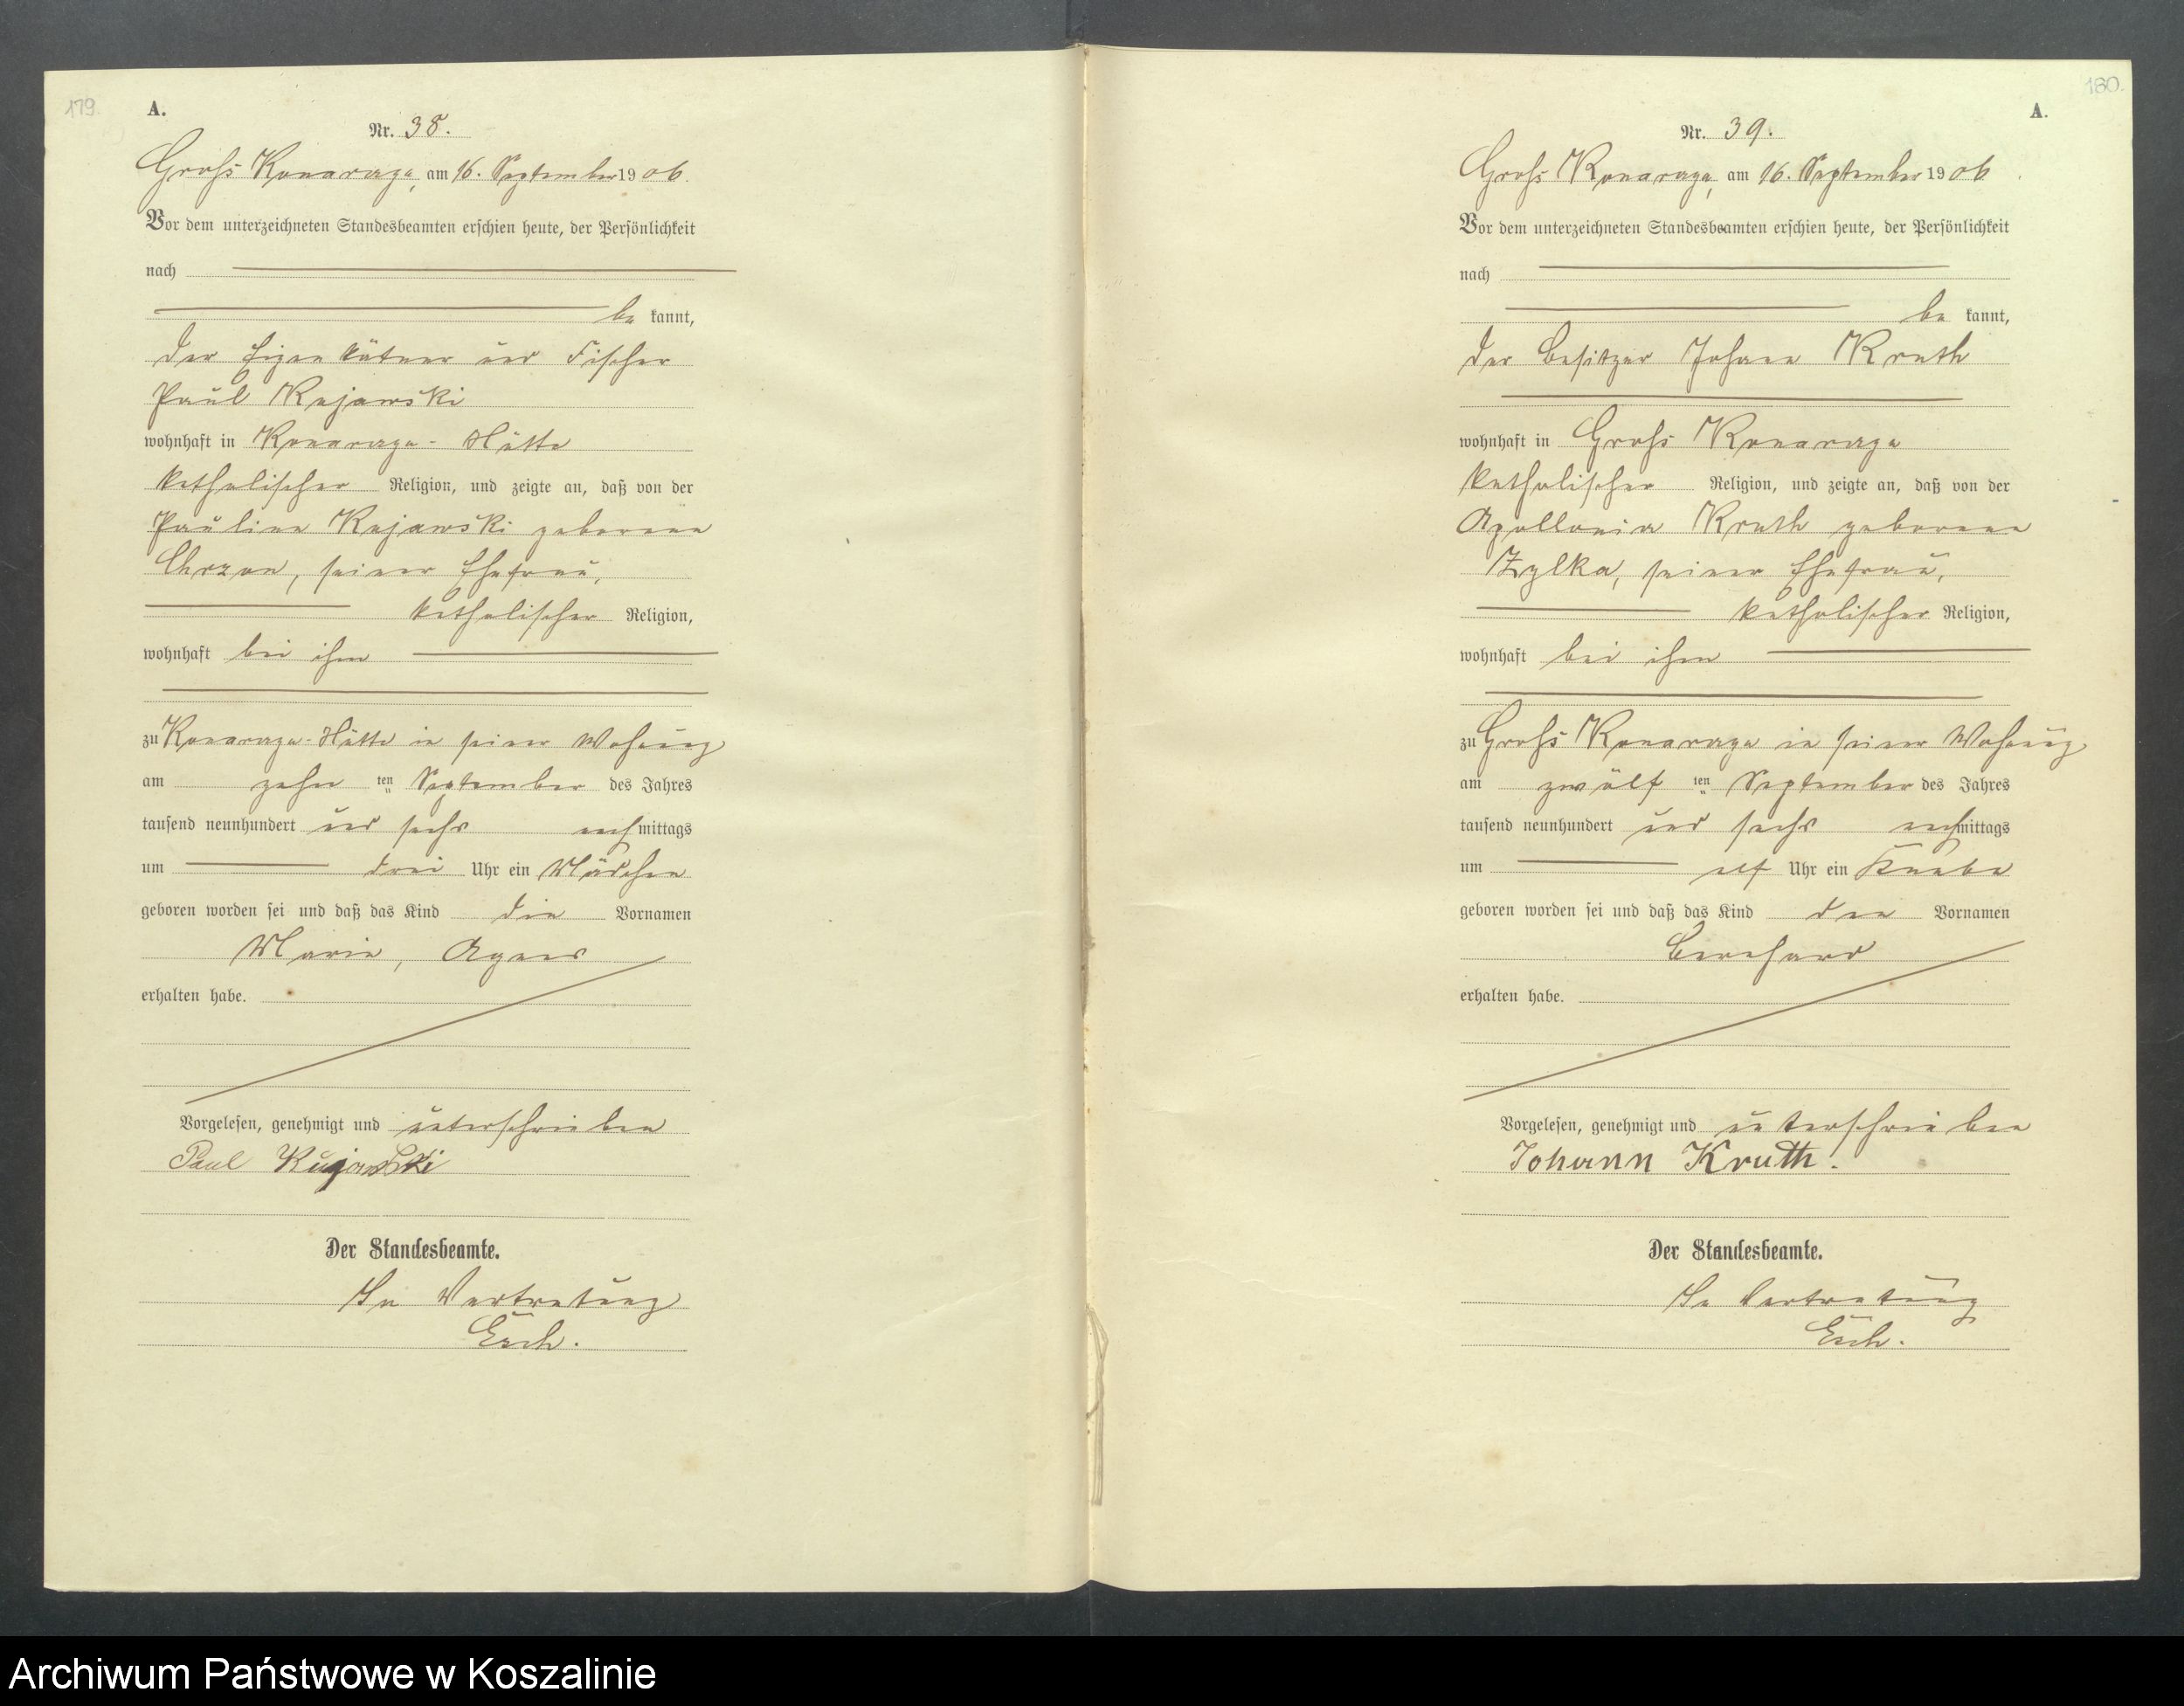 179.
A.
Nr. 38.
Groß Konarzyn, am 16. September 1906.
Vor dem unterzeichneten Standesbeamten erschien heute, der Persönlichkeit
nach
be kannt,
der Eigenkätner und Fischer
Paul Kujawski
wohnhaft in Konarzyn-Hütte
katholischer Religion, und zeigte an, daß von der
Pauline Kujawski geborene
Chrzon, seiner Ehefrau,
katholischer Religion,
wohnhaft bei ihm
zu Konarzyn-Hütte in seiner Wohnung
am zehn ten September des Jahres
tausend neunhundert und sechs nachmittags
um drei Uhr ein Mädchen
geboren worden sei und daß das Kind die Vornamen
Marie, Agnes
erhalten habe.
Vorgelesen, genehmigt und unterschrieben
Paul Kujawski
Der Standesbeamte.
In Vertretung
Esch.
180.
A.
Nr. 39.
Groß Konarzyn, am 16. September 1906
Vor dem unterzeichneten Standesbeamten erschien heute, der Persönlichkeit
nach
be kannt,
der Besitzer Johann Kruth
wohnhaft in Groß Konarzyn
katholischer Religion, und zeigte an, daß von der
Apollonia Kruth geborene
Zylka, seiner Ehefrau,
katholischer Religion,
wohnhaft bei ihm
zu Groß Konarzyn in seiner Wohnung
am zwölf ten September des Jahres
tausend neunhundert und sechs nachmittags
um elf Uhr ein Knabe
geboren worden sei und daß das Kind den Vornamen
Bernhard
erhalten habe.
Vorgelesen, genehmigt und unterschrieben
Johann Kruth.
Der Standesbeamte.
In Vertretung
Esch.
Archiwum Państwowe w Koszalinie